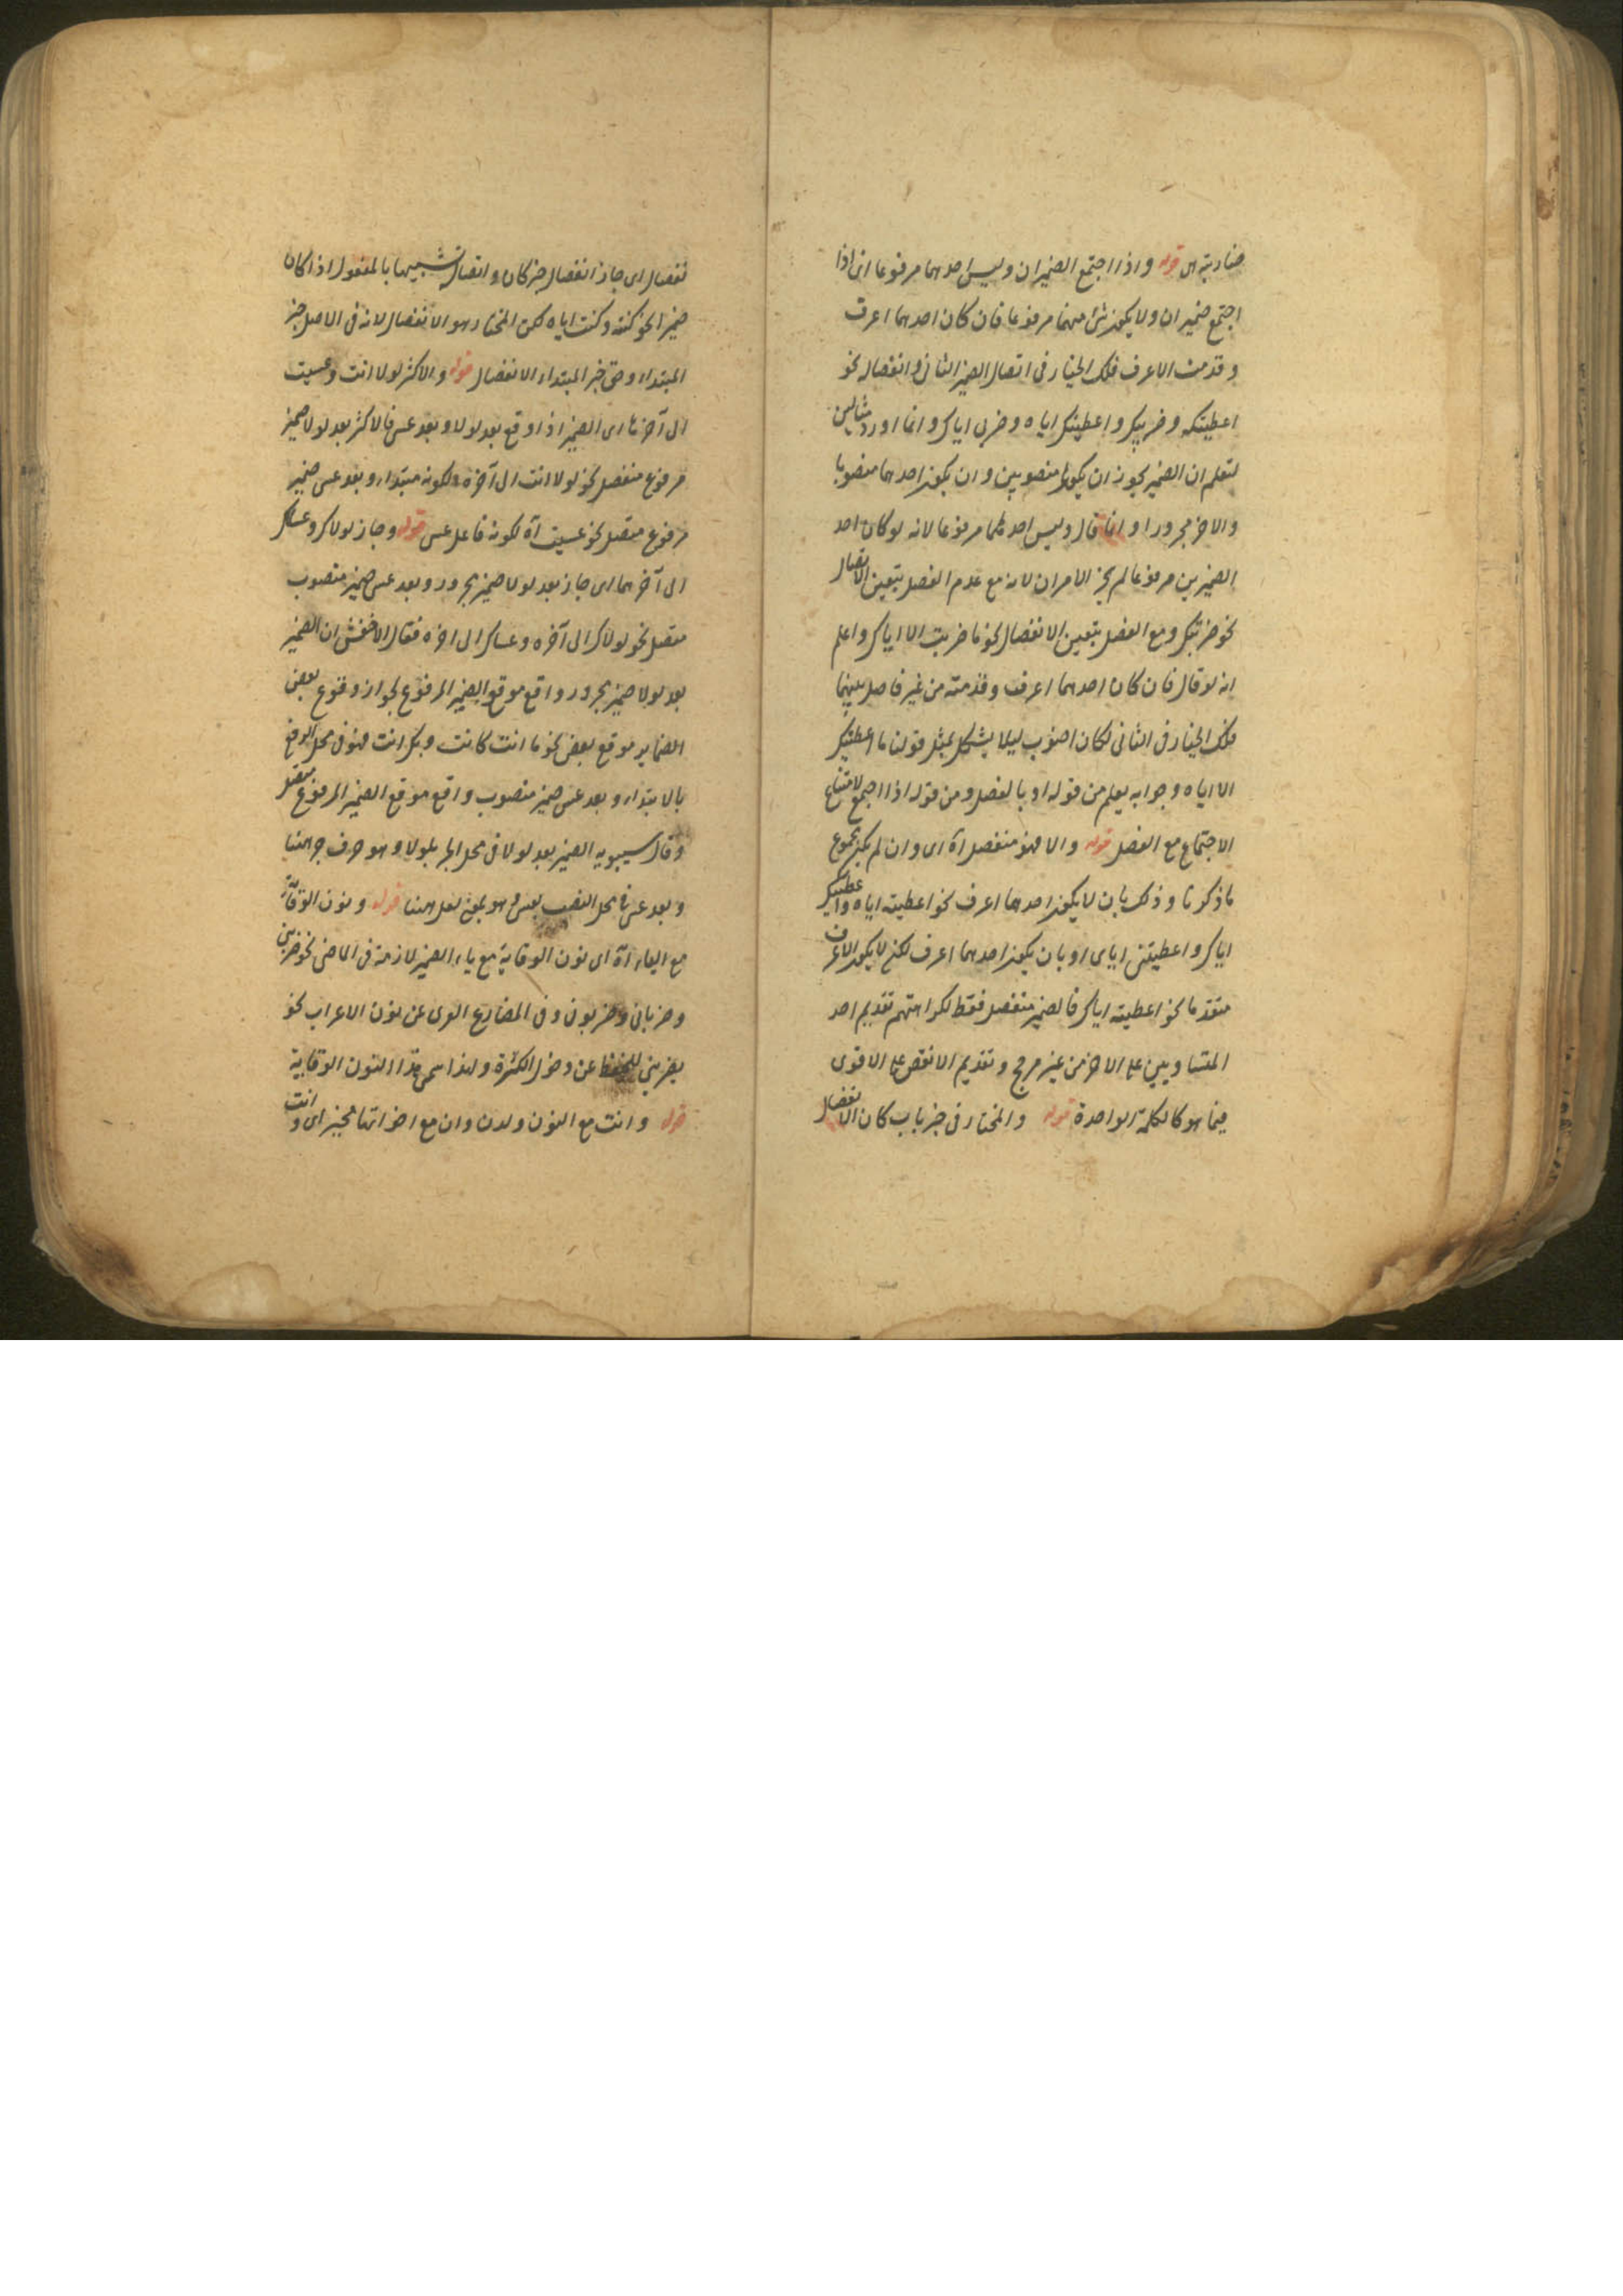 ضاربته هي قوله واذا اجتمع الضميران وليس احدهما مرفوعا اى اذا
اجتمع ضميران ولا يكون شئ منهما مرفوعا فان كان احدهما اعرف
وقدمت الاعرف فلك الخيار فى اتصال الضمير الثانى وانفصاله نحو
اعطيتكه وضربيك واعطيتك اياه وضربى اياك وانما اورد مثالين
لتعلم ان الضمير يجوز ان يكونا منصوبين وان يكون احدهما منصوبا
والاخر مجرورا وانما قال وليس احدهما مرفوعا لانه لو كان احد
الضميرين مرفوعا لم يجز الامران لانه مع عدم الفصل يتعين الاتصال
نحو ضربتك ومع الفصل يتعين الانفصال نحو ما ضربت الا اياك واعلم
انه لو قال فان كان احدهما اعرف وقدمته من غير فاصل بينهما
فلك الخيار فى الثانى لكان اصوب ليلا يشكل بمثل قولنا ما اعطيتك
الا اياه وجوابه يعلم من قوله او بالفصل ومن قوله اذا اجتمع لامتناع
الاجتماع مع الفصل قوله والا فهو منفصل آه اى وان لم يكن مجموع
ما ذكرنا وذلك بان لا يكون احدهما اعرف نحو اعطيته اياه واعطيتك
اياك واعطيتنى اياى او بان يكون احدهما اعرف لكن لا يكون الاعرف
متقدما نحو اعطيته اياك فالضمير منفصل فقط لكراهتهم تقديم احد
المتساويين على الاخر من غير مرجح وتقديم الانقص على الاقوى
فيما هو كالكلمة الواحدة قوله والمختار فى خبر باب كان الانفصال
نفصال اى جاز انفصال خبر كان واتصاله تشبيها بالمفعول اذا كان
ضميرا نحو كنته وكنت اياه لكن المختار هو الانفصال لانه فى الاصل خبر
المبتداء وحق خبر المبتداء الانفصال قوله والاكثر لولا انت وعسيت
الى آخرها اى الضمير اذا وقع بعد لولا وبعد عسى فالاكثر بعد لولا ضمير
مرفوع منفصل نحو لولا انت الى آخره لكونه مبتداء وبعد عسى ضمير
مرفوع متصل نحو عسيت آه لكونه فاعل عسى قوله وجاز لولاك وعساك
الى آخرهما اى جاز بعد لولا ضمير مجرور وبعد عسى ضمير منصوب
متصل نحو لولاك الى آخره وعساك الى اخره فقال الاخفش ان الضمير
بعد لولا ضمير مجرور واقع موقع الضمير المرفوع لجواز وقوع بعض
الضماير موقع بعض نحو ما انت كانت وبك انت فهو فى محل الرفع
بالابتداء وبعد عسى ضمير منصوب واقع موقع الضمير المرفوع متصل
وقال سيبويه الضمير بعد لولا فى محل الجر بلولا وهو حرف جر ههنا
وبعد عسى فى محل النصب بعسى وهو بمعنى لعل ههنا قوله ونون الوقاية
مع الياء آه اى نون الوقاية مع ياء الضمير لازمة فى الماضى نحو ضربنى
وضربانى وضربونى وفى المضارع العرى عن نون الاعراب نحو
يضربنى للتحفظ عن دخول الكسرة ولهذا سمى هذا النون الوقاية
قوله وانت مع النون ولدن وان مع اخواتها مخير اى وانت